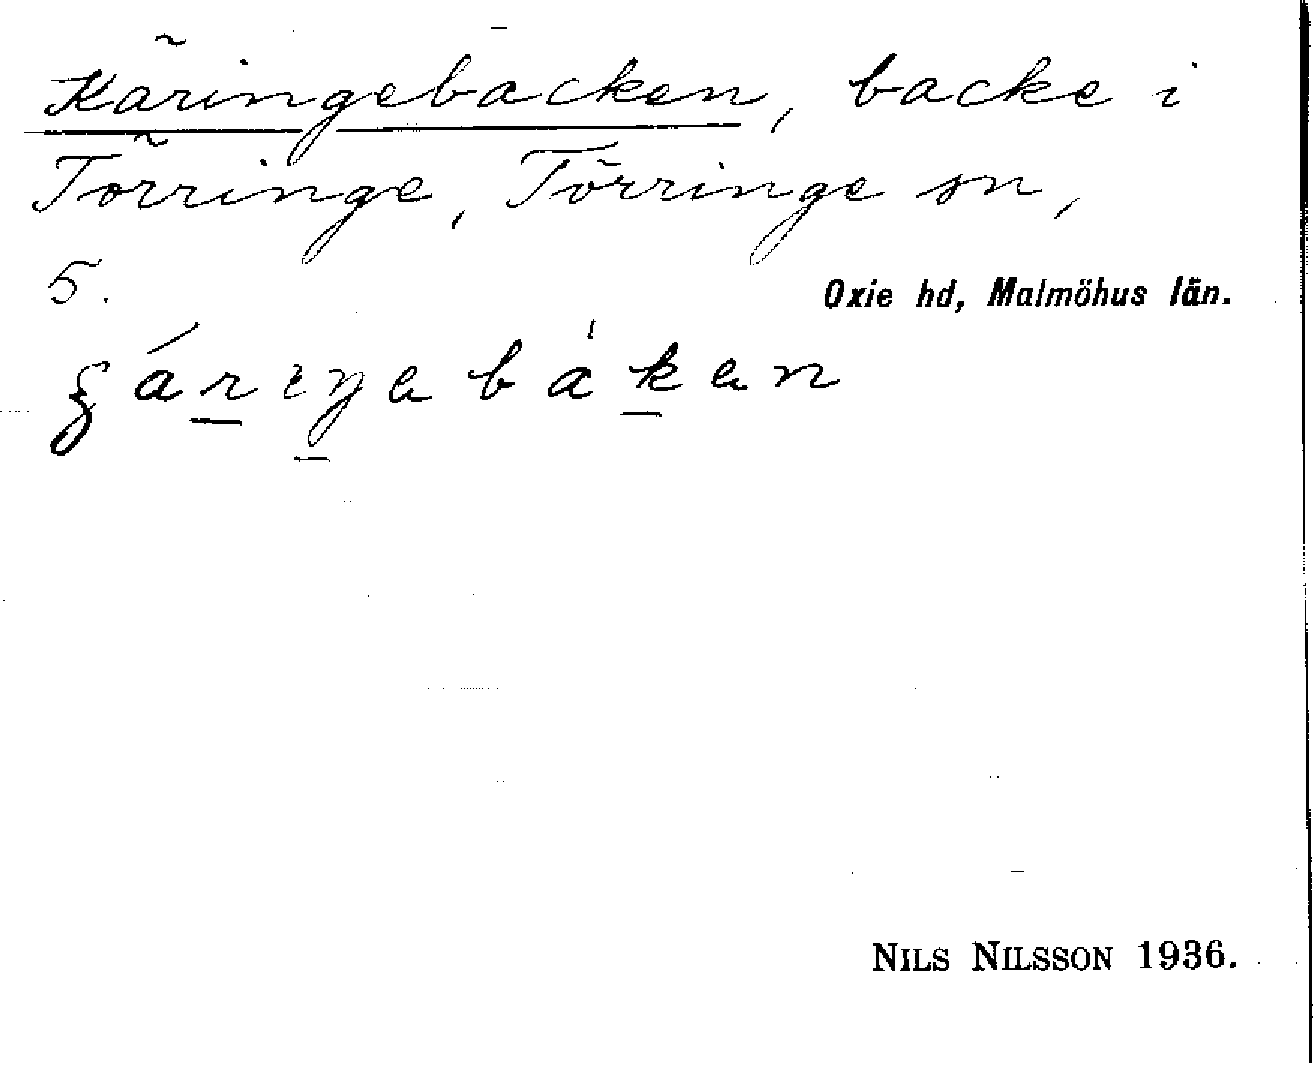 Käringebacken, backe i
Törringe, Törringe sn,
5.
Oxie hd, Malmöhus län.
NILS NILSSON 1936.